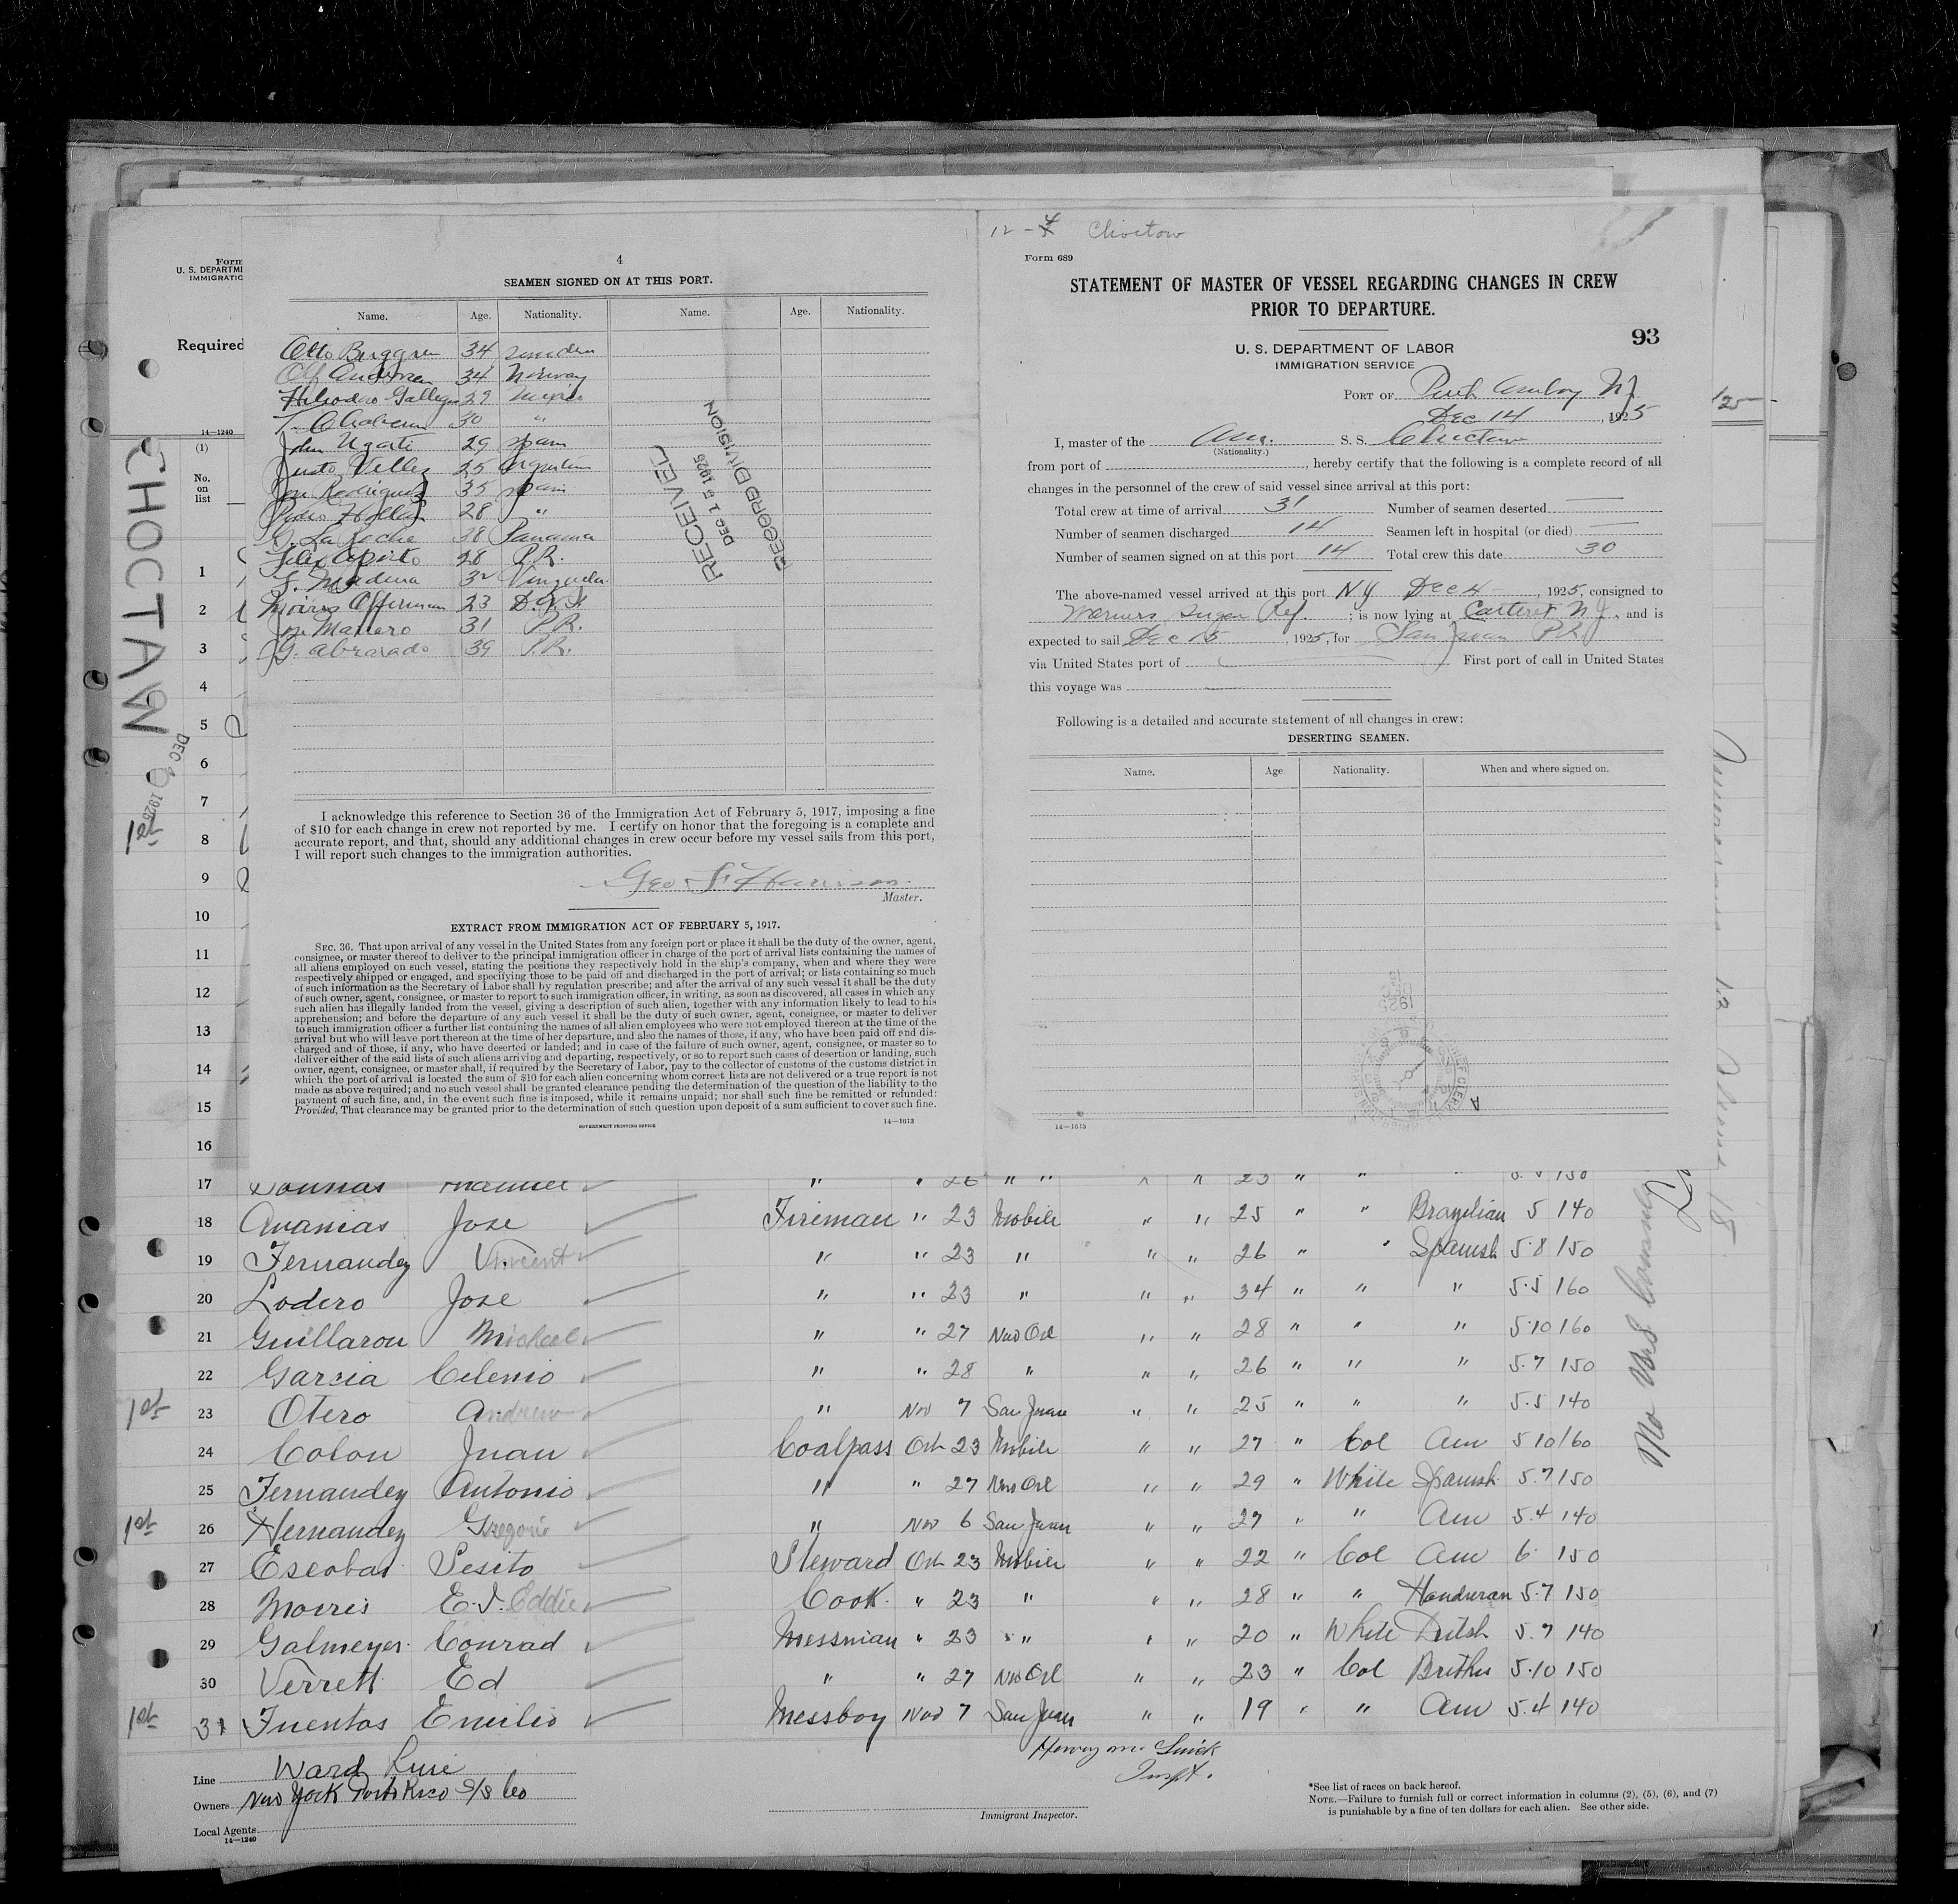 12-4 Choctow
Form
U. S. DEPARTM
IMMIGRATIO
Required
14-1240
(1)
No.
on
list
CHOCTAW
DEC 1925
1st
4
SEAMEN SIGNED ON AT THIS PORT.
Name. Age. Nationality. Name. Age. Nationality.
Otto Berggren 34 Sweden
Olf Andersen 34 Norway
Heliodoro Gallegos 29 Mexico
30 "
John Ugarte 29 Spain
Justo Vellez 25 Argentina
Jose Rodriguez 35 Spain
Pedro 28 "
G. La Roche 38 Panama
Felix Aponto 28 P.R.
F. Madura 32 Venzuela
Morris Offerman 23 D.W.I.
Jose Marrero 31 P.R.
G. Abrasado 39 P.R.
RECEIVED
DEC 1925
RECORD DIVISION
I acknowledge this reference to Section 36 of the Immigration Act of February 5, 1917, imposing a fine
of $10 for each change in crew not reported by me. I certify on honor that the foregoing is a complete and
accurate report, and that, should any additional changes in crew occur before my vessel sails from this port,
I will report such changes to the immigration authorities.
Geo S. Harrison
Master.
EXTRACT FROM IMMIGRATION ACT OF FEBRUARY 5, 1917.
SEC. 36. That upon arrival of any vessel in the United States from any foreign port or place it shall be the duty of the owner, agent,
consignee, or master thereof to deliver to the principal immigration officer in charge of the port of arrival lists containing the names of
all aliens employed on such vessel, stating the positions they respectively hold in the ship's company, when and where they were
respectively shipped or engaged, and specifying those to be paid off and discharged in the port of arrival; or lists containing so much
of such information as the Secretary of Labor shall by regulation prescribe; and after the arrival of any such vessel it shall be the duty
of such owner, agent, consignee, or master to report to such immigration officer, in writing, as soon as discovered, all cases in which any
such alien has illegally landed from the vessel, giving a description of such alien, together with any information likely to lead to his
apprehension; and before the departure of any such vessel it shall be the duty of such owner, agent, consignee, or master to deliver
to such immigration officer a further list containing the names of all alien employees who were not employed thereon at the time of the
arrival but who will leave port thereon at the time of her departure, and also the names of those, if any, who have been paid off and dis-
charged and of those, if any, who have deserted or landed; and in case of the failure of such owner, agent, consignee, or master so to
deliver either of the said lists of such aliens arriving and departing, respectively, or so to report such cases of desertion or landing, such
owner, agent, consignee, or master shall, if required by the Secretary of Labor, pay to the collector of customs of the customs district in
which the port of arrival is located the sum of $10 for each alien concerning whom correct lists are not delivered or a true report is not
made as above required; and no such vessel shall be granted clearance pending the determination of the question of the liability to the
payment of such fine, and, in the event such fine is imposed, while it remains unpaid; nor shall such fine be remitted or refunded:
Provided, That clearance may be granted prior to the determination of such question upon deposit of a sum sufficient to cover such fine.
GOVERNMENT PRINTING OFFICE 14—1613
Form 689
STATEMENT OF MASTER OF VESSEL REGARDING CHANGES IN CREW
PRIOR TO DEPARTURE.
93
U. S. DEPARTMENT OF LABOR
IMMIGRATION SERVICE
PORT OF Perth Amboy N.J.
Dec 14, 1925
I, master of the Am. S. S. Choctaw
(Nationality.)
from port of , hereby certify that the following is a complete record of all
changes in the personnel of the crew of said vessel since arrival at this port:
Total crew at time of arrival 31 Number of seamen deserted
Number of seamen discharged 14 Seamen left in hospital (or died)
Number of seamen signed on at this port 14 Total crew this date 30
The above-named vessel arrived at this port NY Dec 4, 1925, consigned to
Warners Sugar Ref. ; is now lying at Carteret N J, and is
expected to sail Dec 15, 1925, for San Juan P R
via United States port of First port of call in United States
this voyage was
Following is a detailed and accurate statement of all changes in crew:
DESERTING SEAMEN.
Name. Age. Nationality. When and where signed on.
14—1613
1
2
3
4
5
6
7
8
9
10
11
12
13
14
15
16
17 " " 26 " " " " 23 " " 150
18 Ananias Jose Fireman " 23 Mobile " " 25 " " Brazilian 5 140
19 Fernandez Vincent " " 23 " " " 26 " " Spanish 5.8 150
20 Lodero Jose " " 23 " " " 34 " " " 5.5 160
21 Guillarou Micheal " " 27 New Orl " " 28 " " " 5.10 160
22 Garcia Celenio " " 28 " " " 26 " " " 5.7 150
1st 23 Otero Andrew " Nov 7 San Juan " " 25 " " " 5.5 140
24 Colon Juan Coalpass Oct 23 Mobile " " 27 " Col Am 5 10 160
25 Fernandez Antonio " " 27 New Orl " " 29 " White Spanish 5.7 150
1st 26 Hernandez Gregorie " Nov 6 San Juan " " 27 " " Am 5.4 140
27 Escobar Sesito Steward Oct 23 Mobile " " 22 " Col Am 6 150
28 Morris E.I. Eddie Cook " 23 " " " 28 " " Honduran 5.7 150
29 Galmeyer Conrad Messman " 23 " " " 20 " White Dutch 5.7 140
30 Verrett Ed " " 27 New Orl " " 23 " Col British 5.10 150
1st 31 Fuentos Emilio Messboy Nov 7 San Juan " " 19 " " Am 5.4 140
Line Ward Line
Owners New York Porto Rico S/S Co
Local Agents
14—1240
Inspt.
Immigrant Inspector.
*See list of races on back hereof.
NOTE.—Failure to furnish full or correct information in columns (2), (5), (6), and (7)
is punishable by a fine of ten dollars for each alien. See other side.